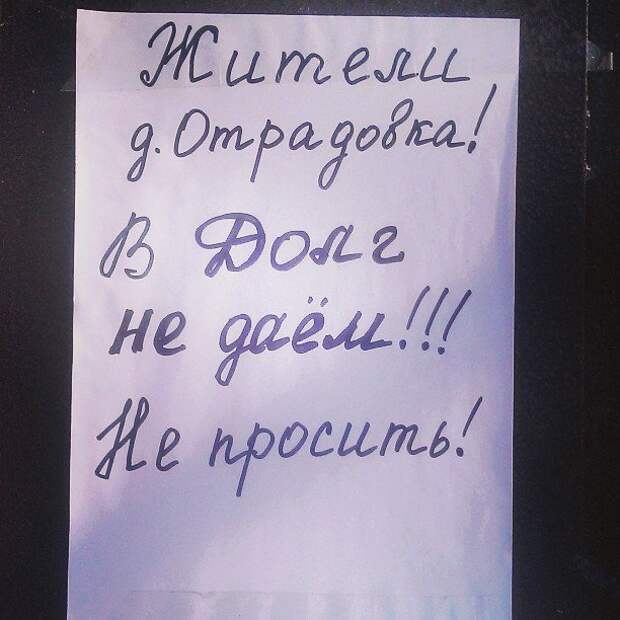 Жители
д. Отрадовка!
В Долг
не даём!!!
Не просить!